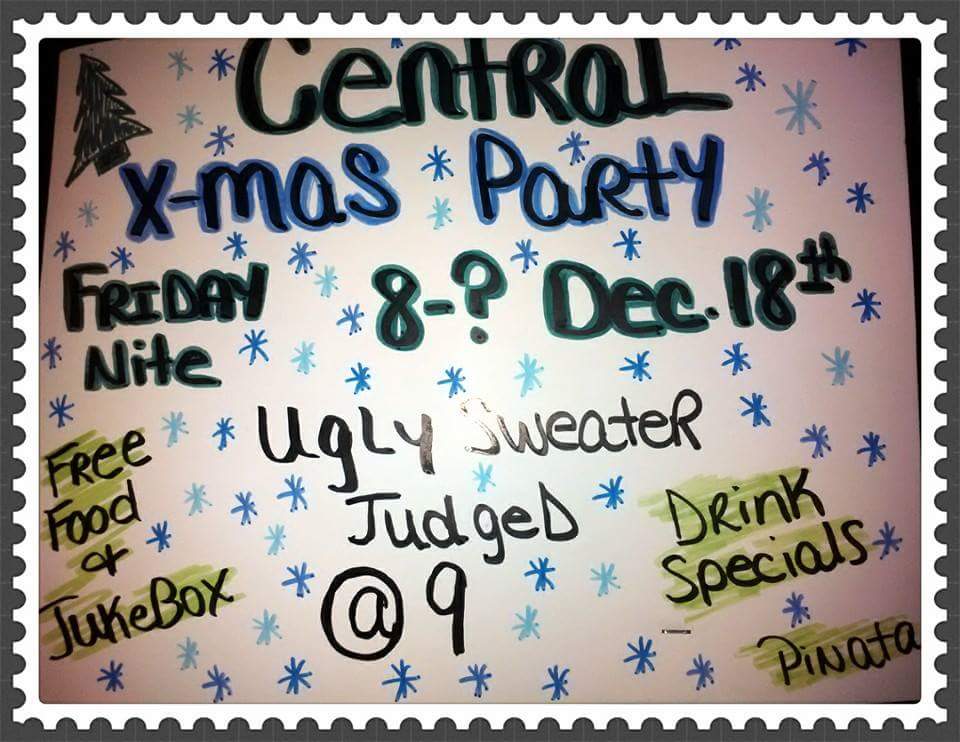 Central
X-mas Party
Friday Nite
8-? Dec. 18th
Ugly Sweater
Judged
@ 9
Free
Food
&
JukeBox
Drink
Specials
Pinata